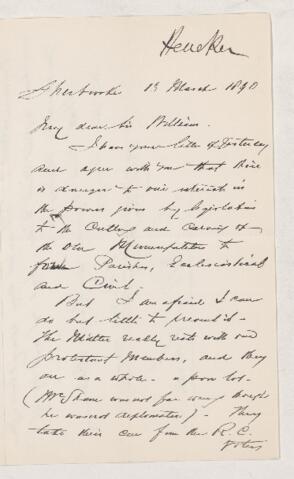 Heneker
Sherbrooke 13 March 1890
My dear Sir William.
I have your letter of yesterday
and agree with you that there
is danger to our interest in
the powers given by legislation
to the cutting and carving of
the old Municipalities to
form Parishes, Ecclesiastical
and Civil.
But I am afraid I can
do but little to prevent it.
The matter really rests with our
Protestant Members, and they
are as a whole a poor lot.
(McShane was not far wrong though
he was not diplomatic) - They
take their cue from the R. C.
voters